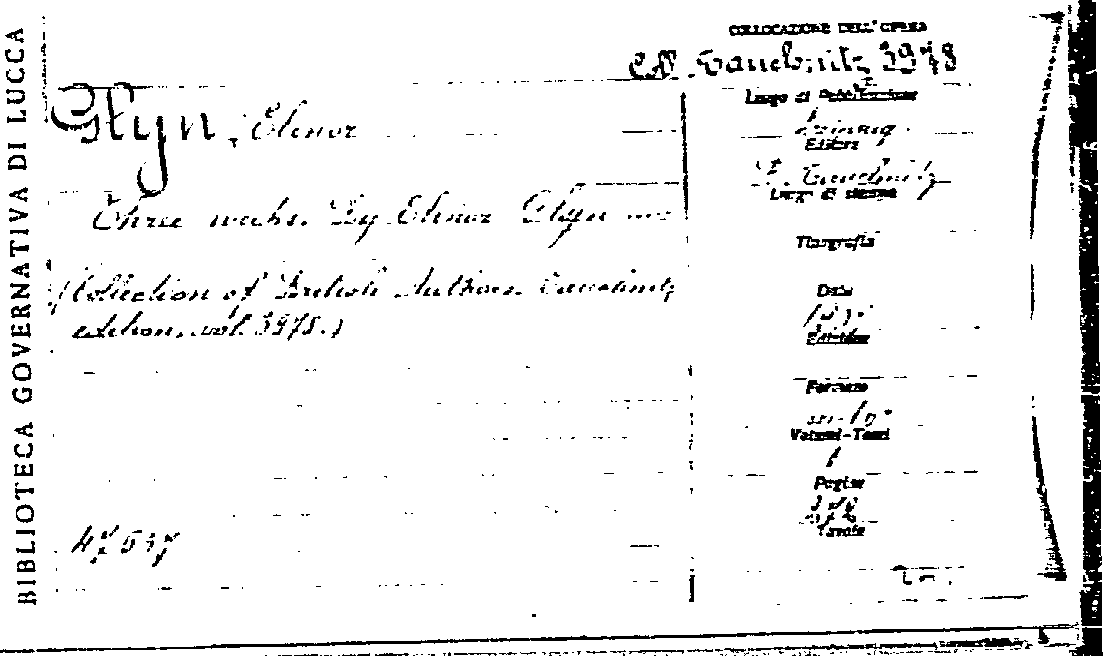 BIBLIOTECA GOVERNATIVA DI LUCCA
COLLOCAZIONE DELL'OPERA
Coll. Tauchnitz 3978
Glyn, Elinor
Three weeks. By Elinor Glyn
(Collection of British Authors. Tauchnitz
edition. vol. 3978.)
47537
Luogo di Pubblicazione
Leipzig
Editore
B. Tauchnitz
Luogo di stampa
Tipografia
Data
Edizione
Formato
in-16°
Volumi-Tomi
1
Pagine
Tavole